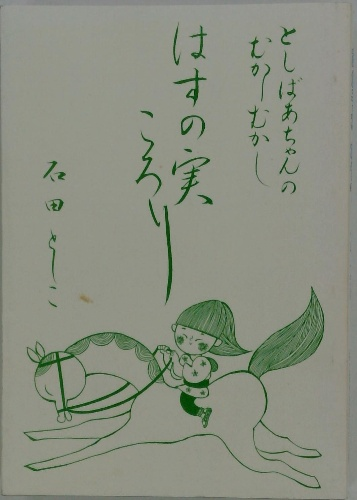 としばあちゃんの
むかしむかし
はすの実
ころりー
石田としこ